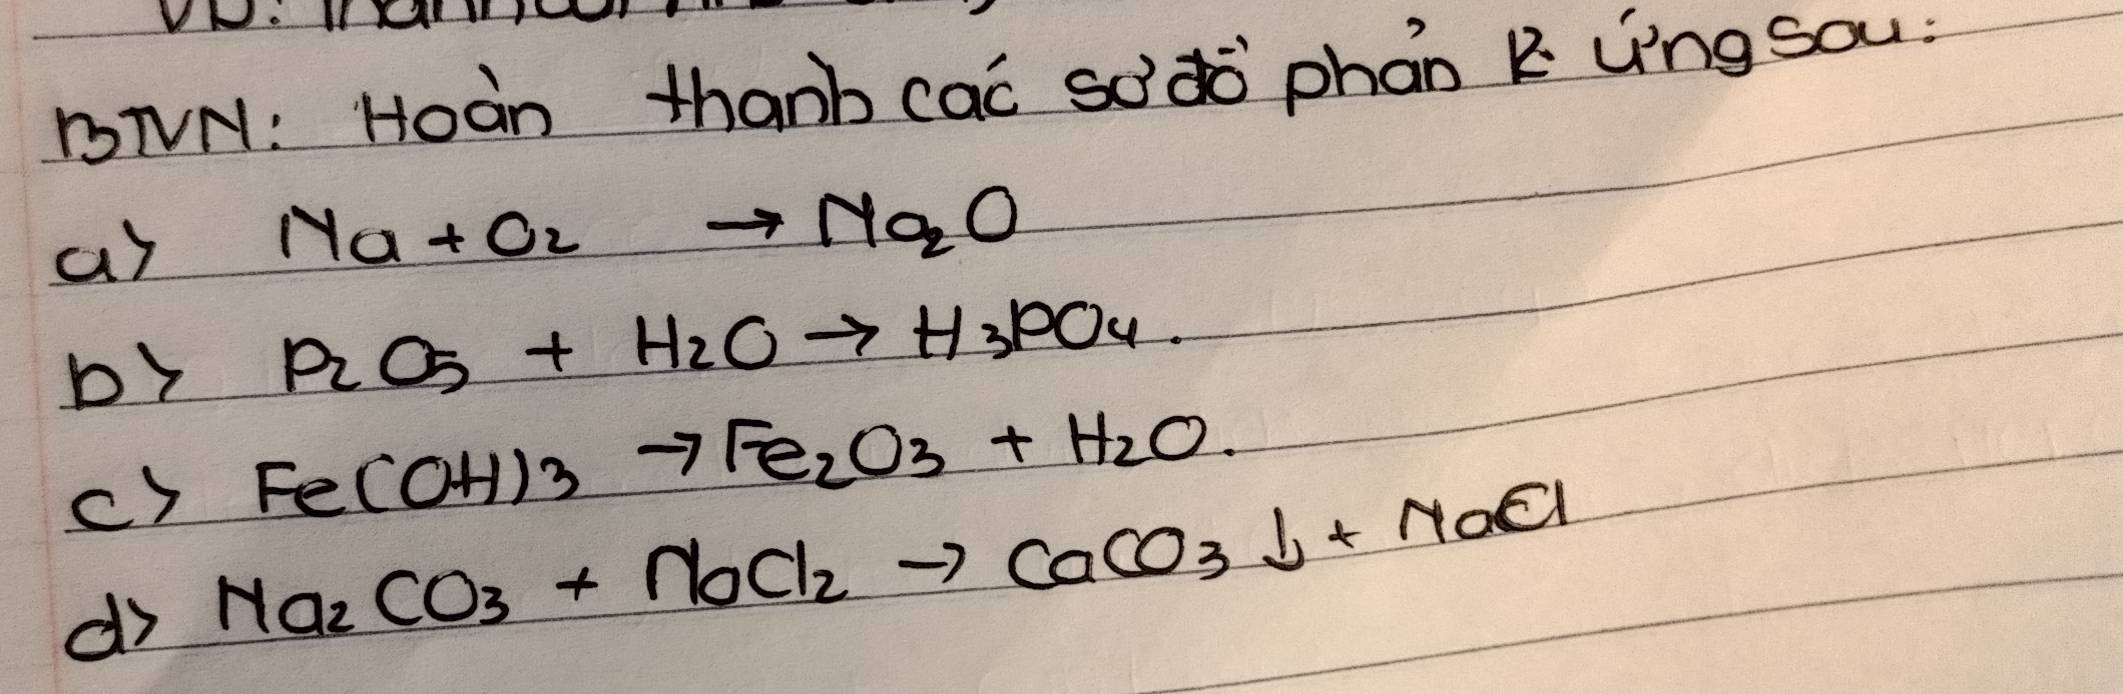 BTVN: Hoàn thành các sơ đồ phản ứng sau:
a> Na + O2 → Na2O
b> P2O5 + H2O → H3PO4.
c> Fe(OH)3 → Fe2O3 + H2O.
d> Na2CO3 + NaCl2 → CaCO3 ↓ + NaCl